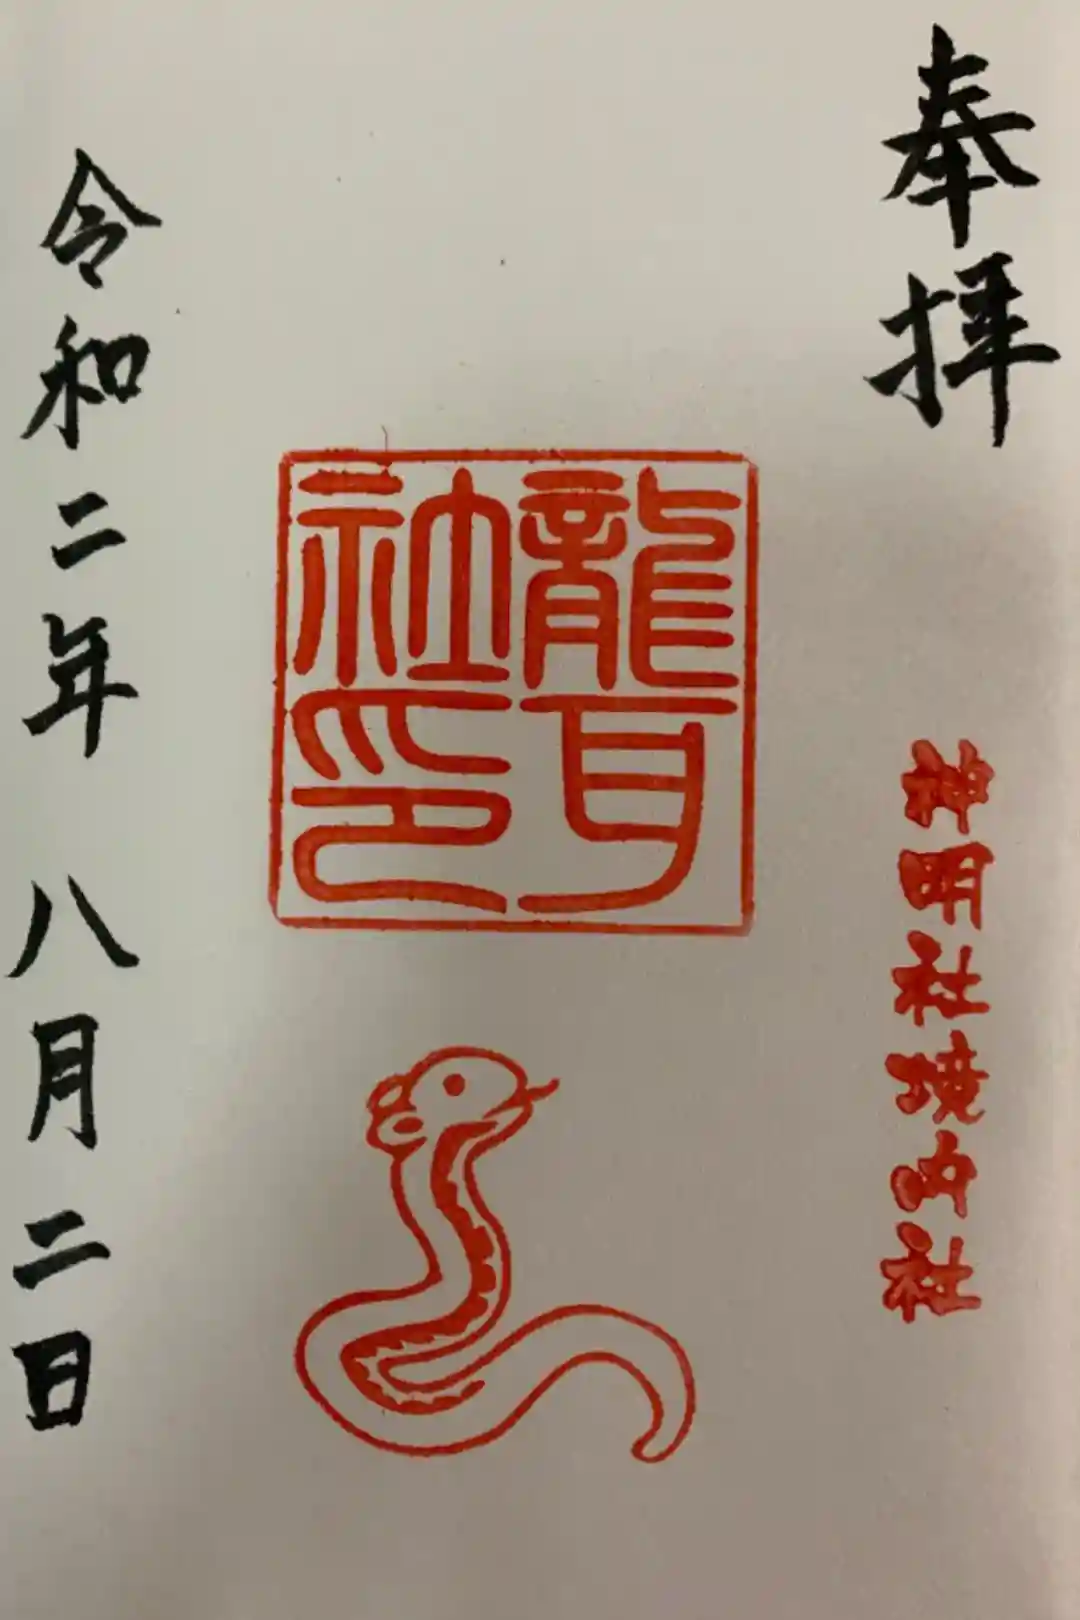 奉拝
神明社境内社
龍耳
社印
令和二年 八月二日